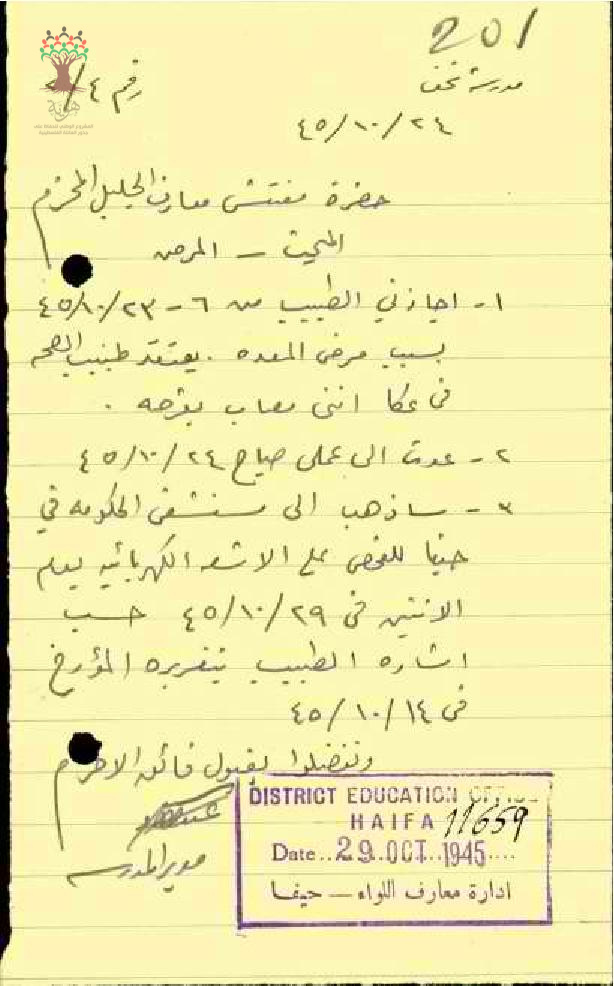 201
مدرسة نحف
رقم ٤/
٤٥/١٠/٢٤
حضرة مفتش معارف الجليل المحترم
المرض
١- اجازني الطبيب من ٦-٤٥/١٠/٢٣
بسبب مرض المعده . يعتقد طبيب الصحه
في عكا انني مصاب بقرحه .
٢- عدت الى عملي صباح ٤٥/١٠/٢٤
٣- ساذهب الى مستشفى الحكومه في
حيفا للفحص على الاشعه الكهربائيه يوم
الاثنين في ٤٥/١٠/٢٩ حسب
اشاره الطبيب بتقريره المؤرخ
في ٤٥/١٠/١٤
وتفضلوا بقبول فائق الاحترام
مدير المدرسه
DISTRICT EDUCATION OFFICE
HAIFA 11659
Date..29 OCT 1945....
ادارة معارف اللواء — حيفا